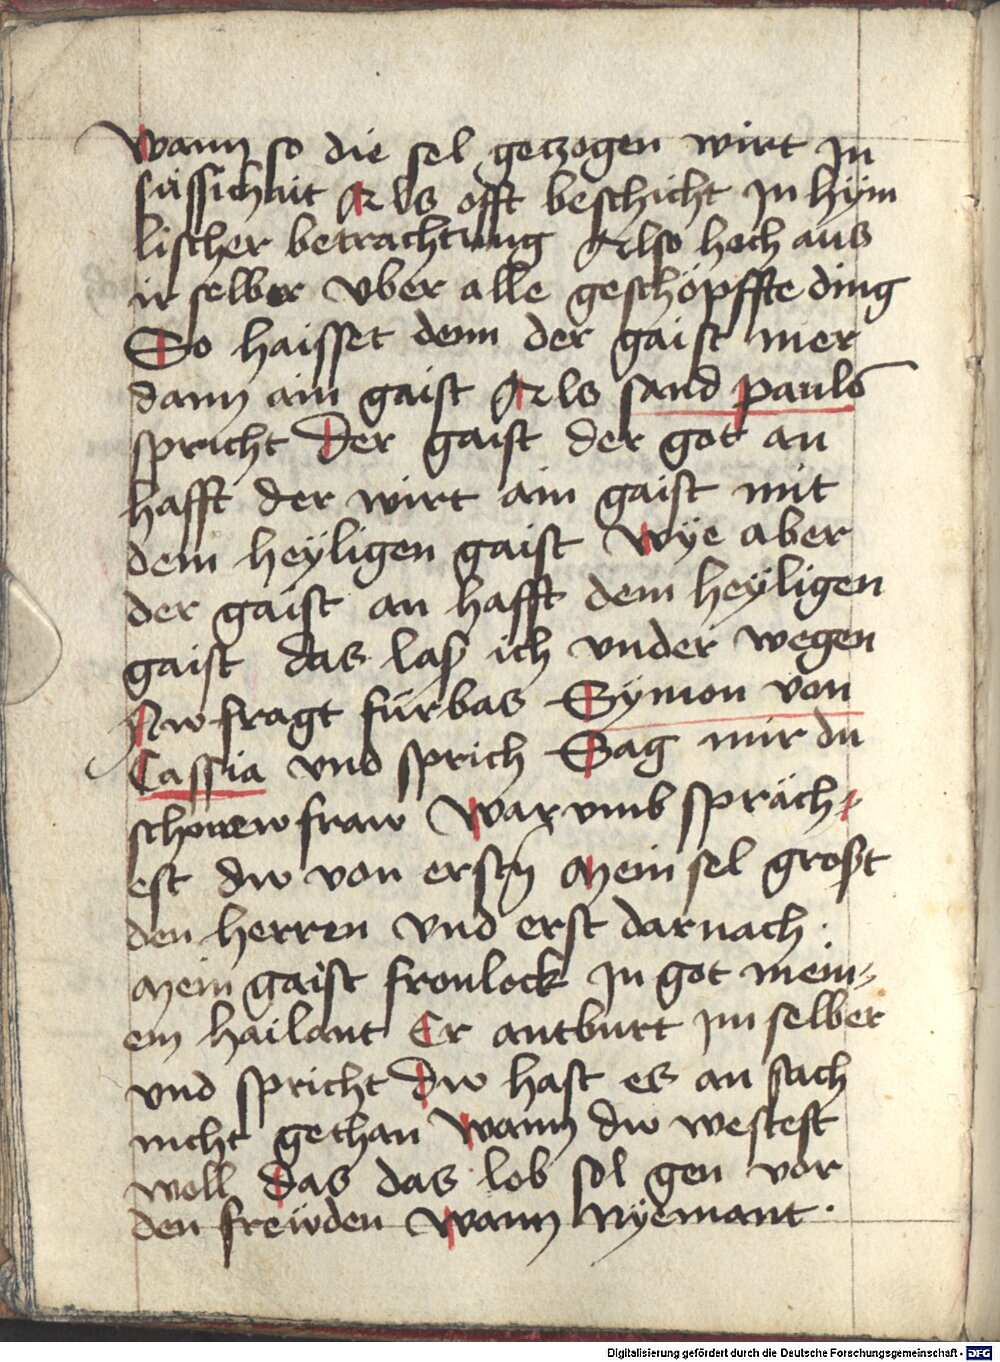 Wann so die sel getzogen wirt Jn
süssichait Als offt beschicht Jn hÿm
lischer betrachtung Also hoch aus
ir selber vber alle geschöpffte ding
So haisset denn der gaist mer
dann ain gaist Als sand pauls
spricht Der gaist der got an
hafft der wirt ain gaist mit
dem heÿligen gaist Wÿe aber
der gaist an hafft dem heÿligen
gaist das lass ich vnder wegen
Nw fragt fürbas Sÿmon von
Cassia vnd sprich Sag mir du
schonew fraw Warvmb spräch
est dw von erstn Mein sel grosst
den herren vnd erst darnach
Mein gaist fronlock Jn got mein
em hailant Er antburt jm selber
vnd spricht Dw hast es an sach
nicht gethan Wann dw westest
woll Das das lob sol gen vor
den frewden Wann Nÿemant
Digitalisierung gefördert durch die Deutsche Forschungsgemeinschaft - DFG